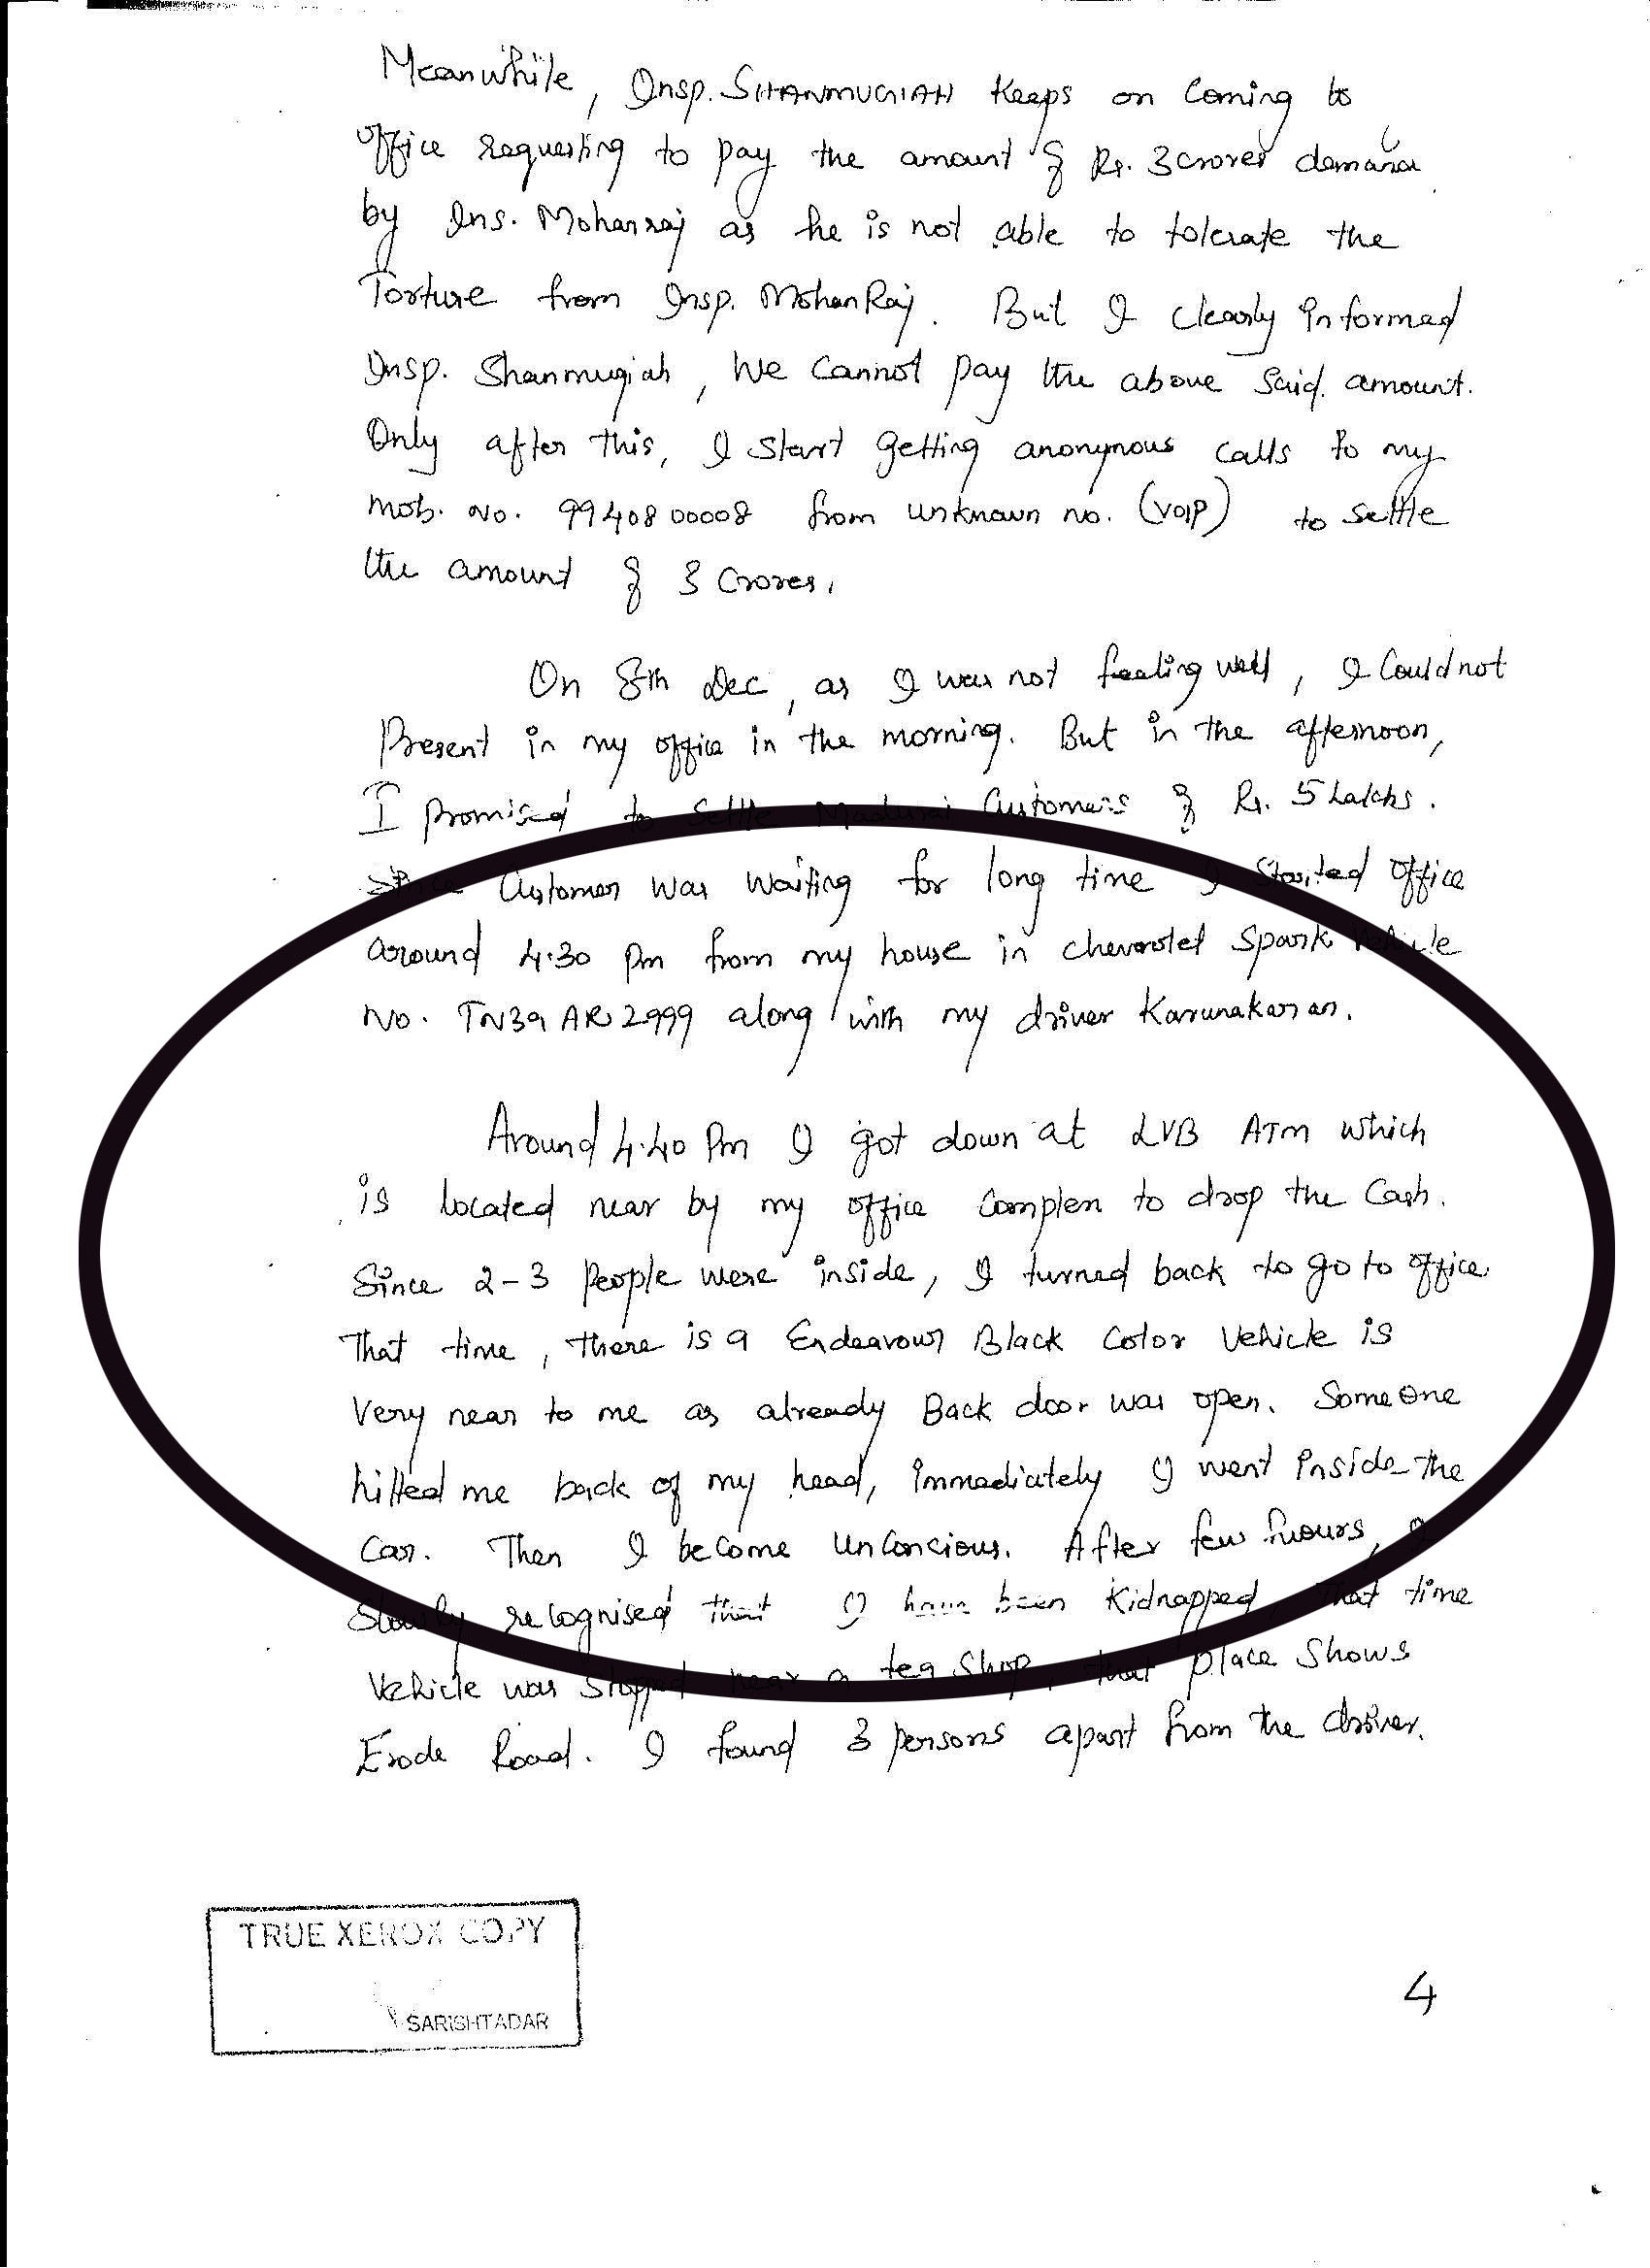 Meanwhile, Insp. SHANMUGIAH keeps on coming to
office requesting to pay the amount of Rs. 3 crores demand
by Ins. Mohanraj as he is not able to tolerate the
Torture from Insp. MohanRaj. But I clearly informed
Insp. Shanmugiah, We cannot pay the above said. amount.
Only after this, I start getting anonymous calls to my
mob. No. 9940800008 from unknown no. (VOIP) to settle
the amount of 3 Crores.
On 8th Dec, as I was not feeling well, I Could not
Present in my office in the morning. But in the afternoon,
I promised to settle Madurai Customers of Rs. 5 Lakhs.
Customer was waiting for long time I started office
around 4.30 Pm from my house in chevrolet Spark Vehicle
No. TN39 AR 2999 along with my driver Karunakaran.
Around 4.40 Pm I got down at LVB ATM which
is located near by my office Complex to drop the Cash.
Since 2-3 People were inside, I turned back to go to office.
That time, there is a Endeavour Black Color Vehicle is
Very near to me as already Back door was open. Someone
hitted me back of my head, immediately I went inside the
Car. Then I become unconcious. After few hours, I
Slowly recognised that I have been Kidnapped, that time
Vehicle was stopped near a tea shop, that place Shows
Erode Road. I found 3 persons apart from the driver.
TRUE XEROX COPY
SARISHTADAR
4